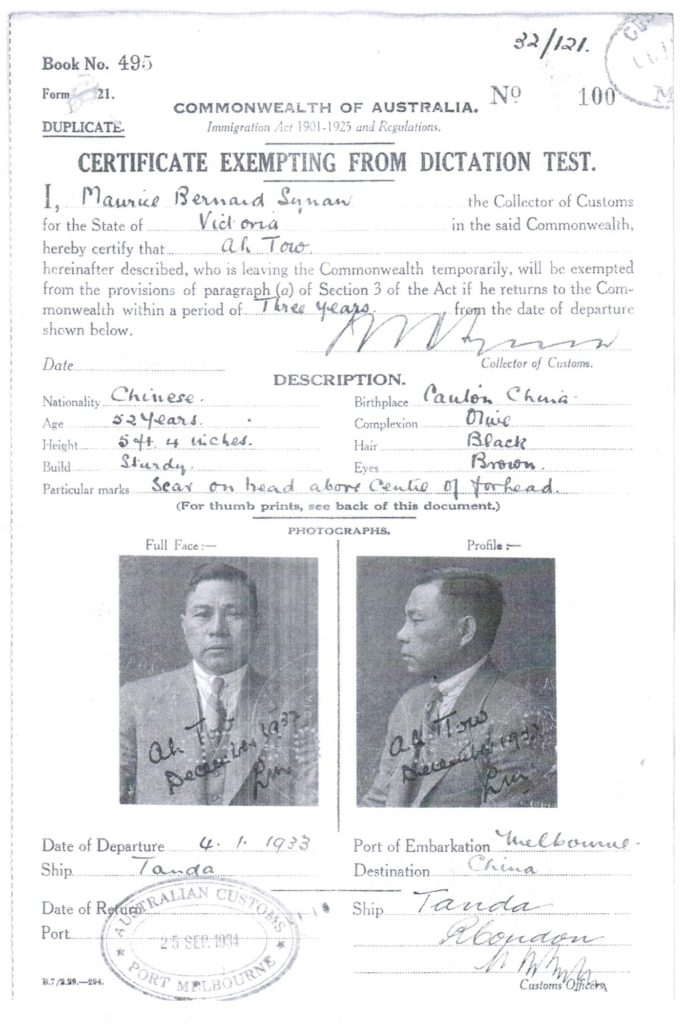 32/121.
Book No. 495
Form 21.
No 100
COMMONWEALTH OF AUSTRALIA.
DUPLICATE.
Immigration Act 1901-1925 and Regulations.
CERTIFICATE EXEMPTING FROM DICTATION TEST.
I, Maurice Bernard Synan the Collector of Customs
for the State of Victoria in the said Commonwealth,
hereby certify that Ah Tow.
hereinafter described, who is leaving the Commonwealth temporarily, will be exempted
from the provisions of paragraph (a) of Section 3 of the Act if he returns to the Com-
monwealth within a period of Three years from the date of departure
shown below.
Date
Collector of Customs.
DESCRIPTION.
Nationality Chinese. Birthplace Canton China.
Age 52 years. Complexion Olive
Height 5 ft. 4 inches. Hair Black
Build Sturdy. Eyes Brown.
Particular marks Scar on head above Centre of forhead.
(For thumb prints, see back of this document.)
PHOTOGRAPHS.
Full Face :— Profile :—
Ah Tow
December 1932
Ah Tow
December 1932
Date of Departure 4. 1. 1933 Port of Embarkation Melbourne.
Ship Tanda Destination China
Date of Return Ship Tanda
Port
AUSTRALIAN CUSTOMS
25 SEP. 1934
PORT MELBOURNE
RCondon
B.7/2.28.—294. Customs Officer.